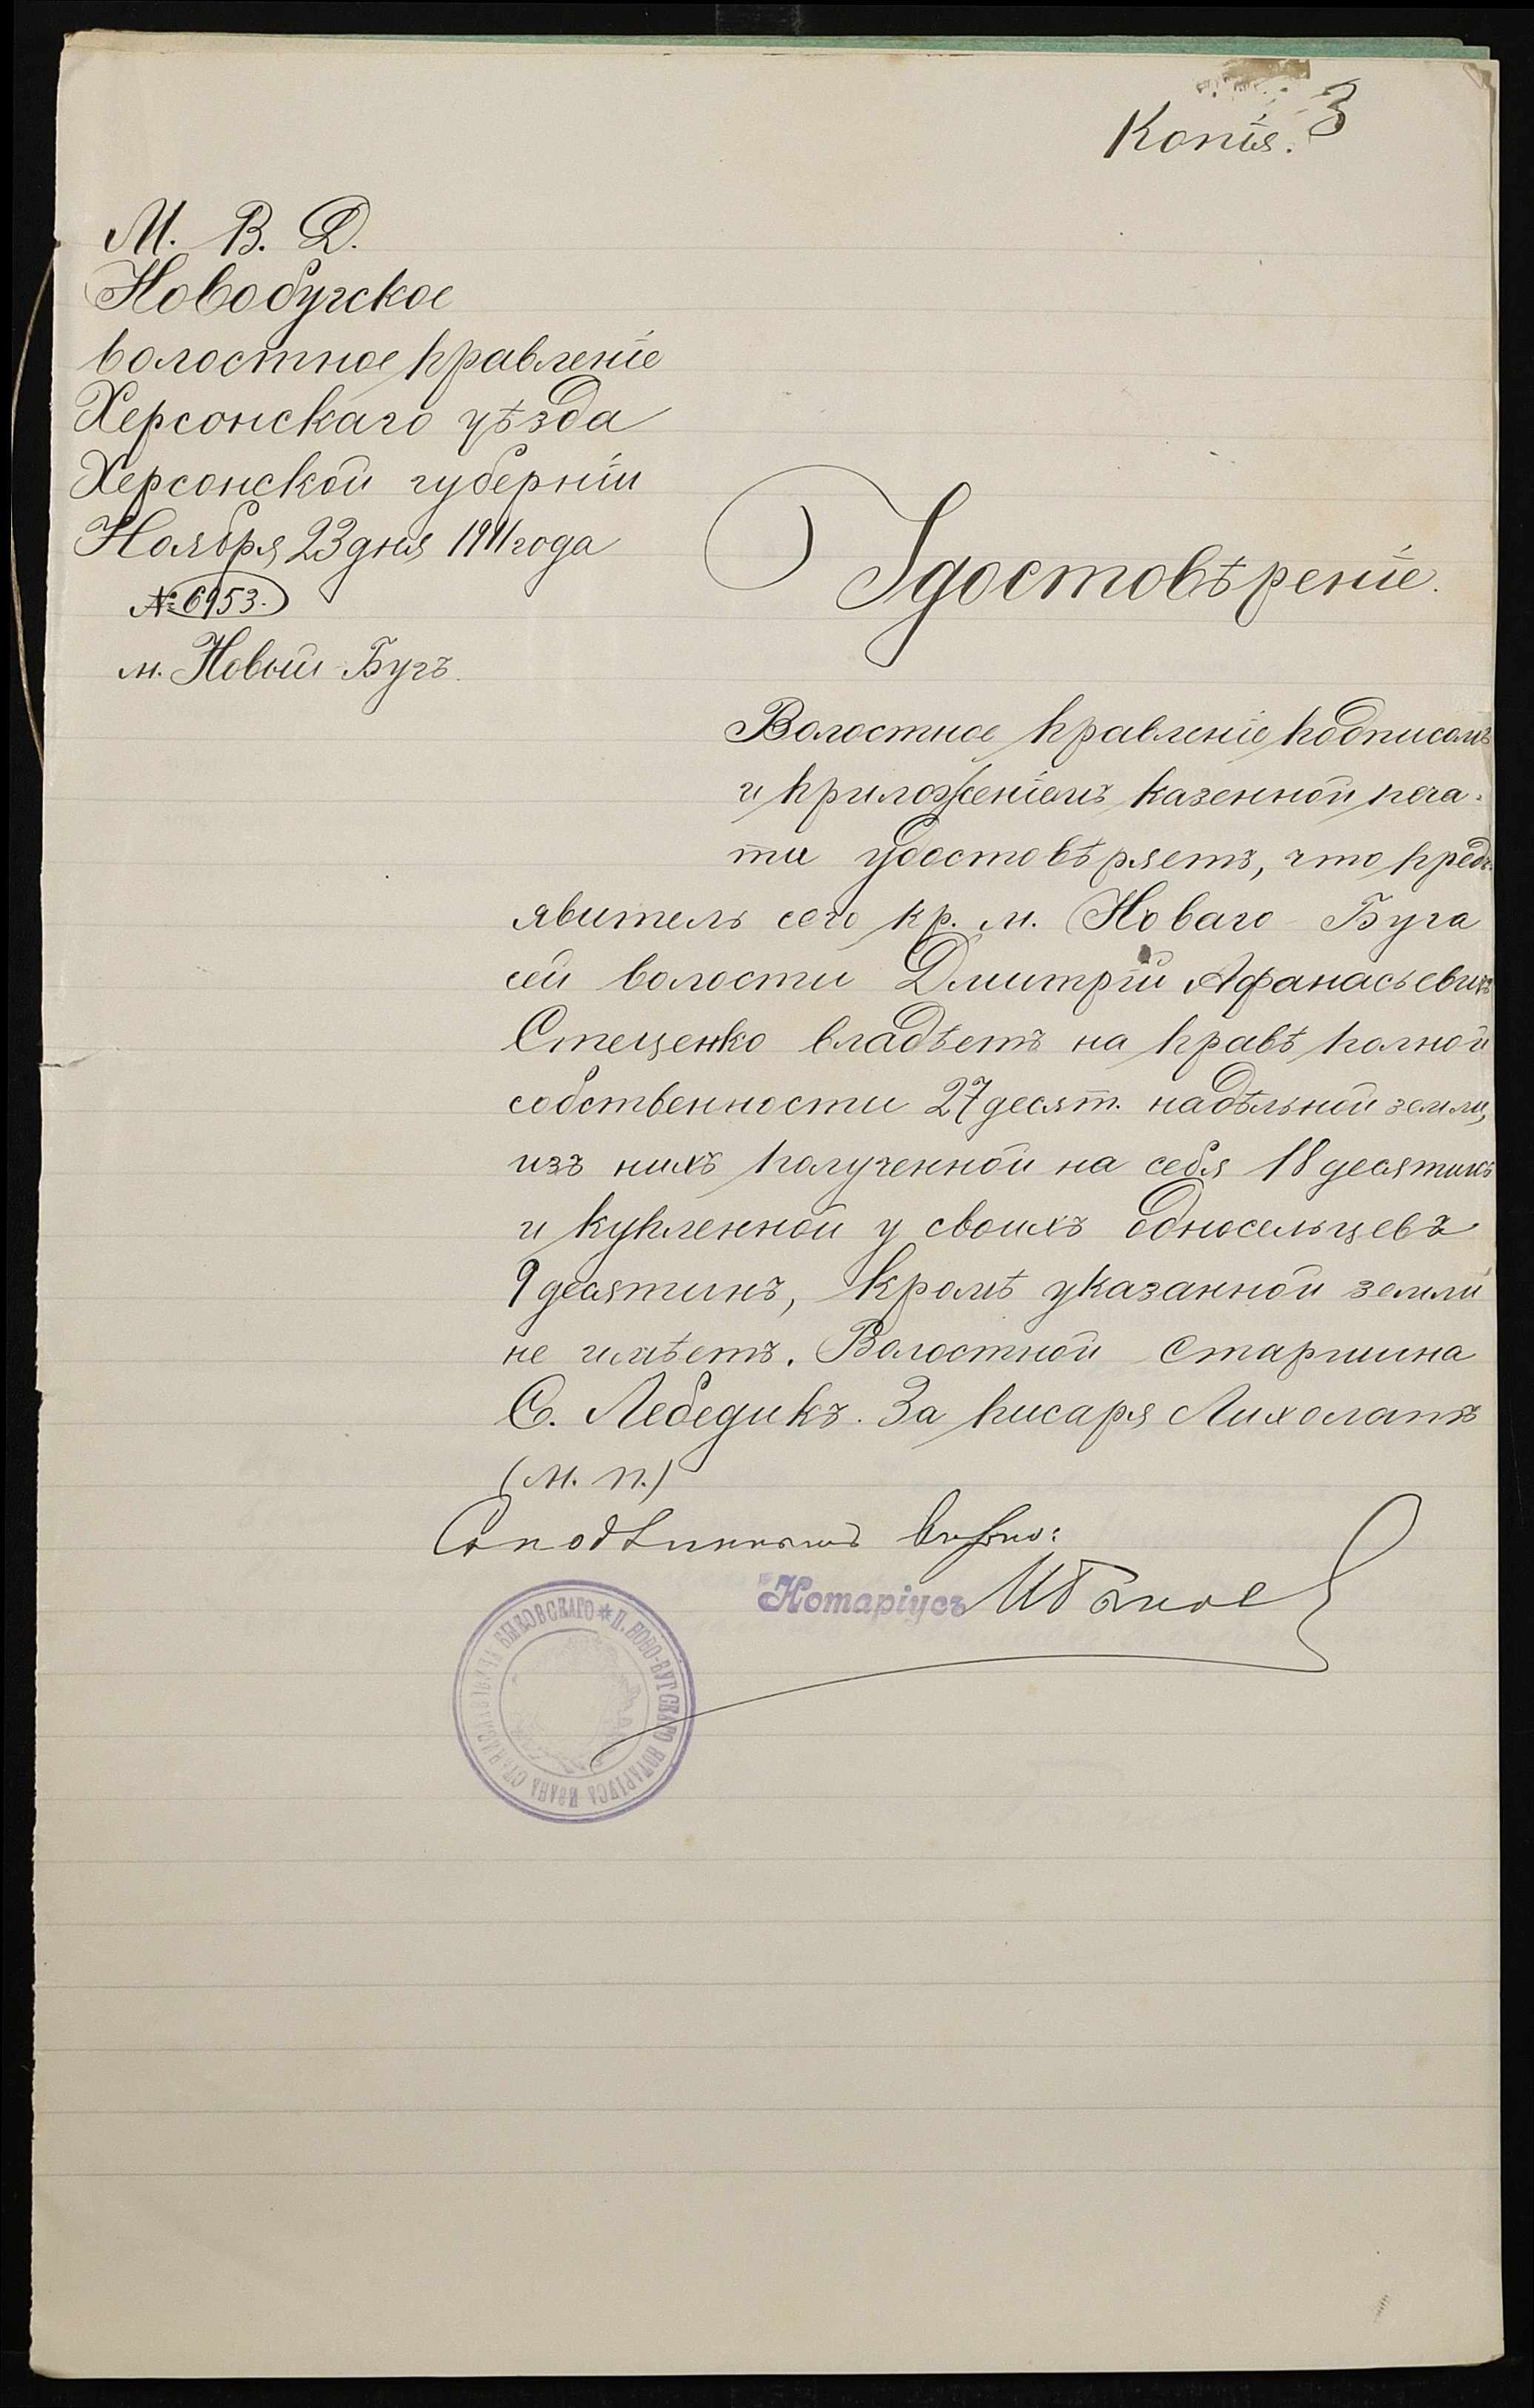 3
Копія.
М. В. Д.
Новобугское
волостное правленіе
Херсонскаго уѣзда
Херсонской губерніи
Ноября 23 дня 1911 года
№ 6953.
м. Новый-Бугъ.
Удостовѣреніе.
Волостное правленіе подписомъ
и приложеніемъ казенной печа-
ти удостовѣряетъ, что предъ-
явитель сего кр. м. Новаго-Буга
сей волости Дмитрій Афанасьевичъ
Стеценко владѣетъ на правѣ полной
собственности 27 десят. надѣльной земли,
изъ нихъ полученной на себя 18 десятинъ
и купленной у своихъ односельцевъ
9 десятинъ, кромѣ указанной земли
не имѣетъ. Волостной Старшина
С. Лебедикъ. За писаря Лихолатъ
(м. п.)
Съ подлиннымъ вѣрно:
Нотаріусъ
* П. НОВО-БУГСКАГО НОТАРІУСА ИВАНА СТАНИСЛАВОВИЧА